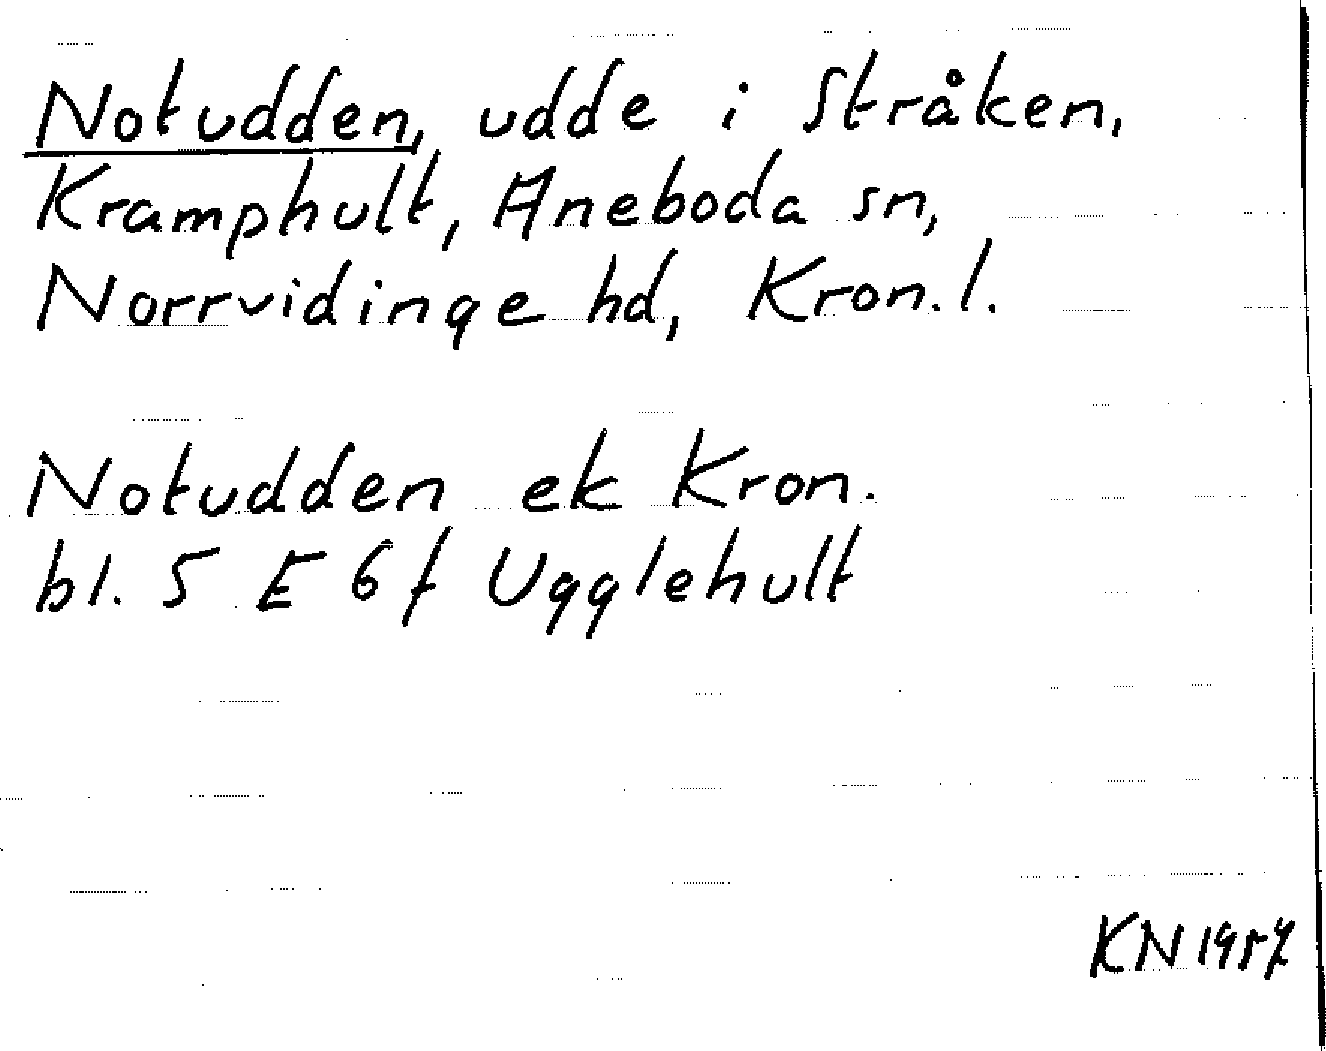 Notudden, udde i Stråken,
Kramphult, Aneboda sn,
Norrvidinge hd, Kron.l.
Notudden ek Kron.
bl. 5 E 6 f Ugglehult
KN 1957